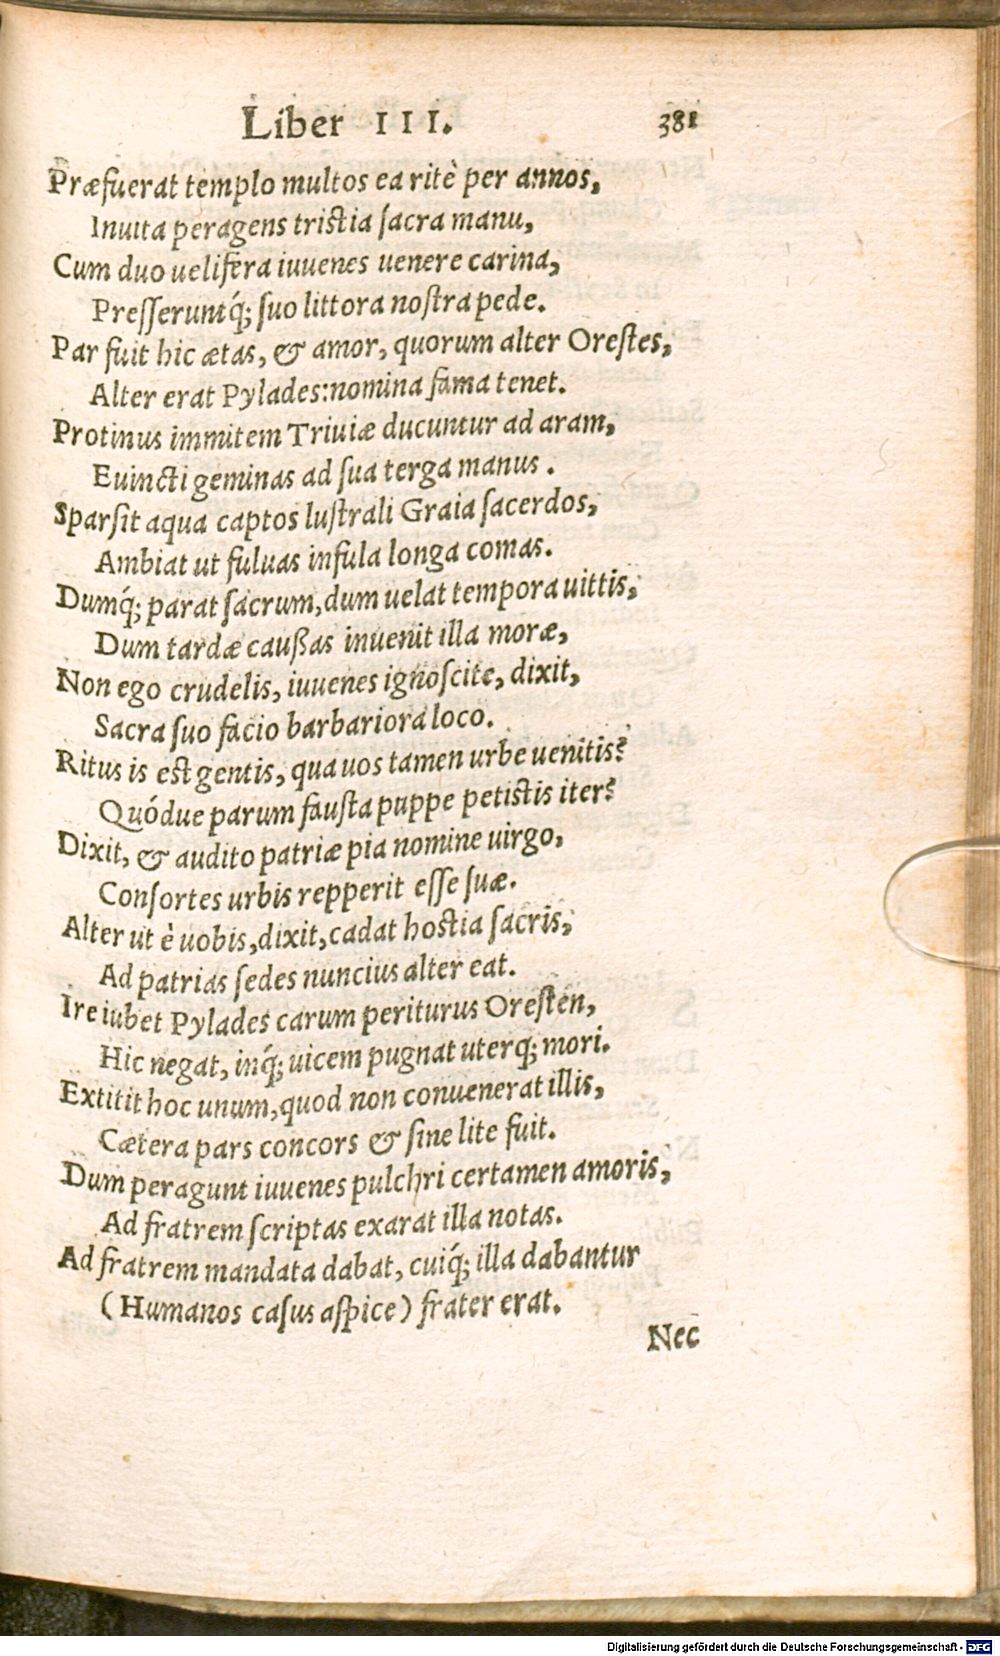 Liber III. 381
Præfuerat templo multos ea ritè per annos,
Inuita peragens tristia sacra manu,
Cum duo uelifera iuuenes uenere carina,
Presseruntq́; suo littora nostra pede.
Par fuit hic ætas, & amor, quorum alter Orestes,
Alter erat Pylades: nomina fama tenet.
Protinus immitem Triuiæ ducuntur ad aram,
Euincti geminas ad sua terga manus.
Sparsit aqua captos lustrali Graia sacerdos,
Ambiat ut fuluas infula longa comas.
Dumq́; parat sacrum, dum uelat tempora uittis,
Dum tardæ caußas inuenit illa moræ,
Non ego crudelis, iuuenes ignoscite, dixit,
Sacra suo facio barbariora loco.
Ritus is est gentis, qua uos tamen urbe uenitis?
Quóue parum fausta puppe petistis iter?
Dixit, & audito patriæ pia nomine uirgo,
Consortes urbis repperit esse suæ.
Alter ut è uobis, dixit, cadat hostia sacris,
Ad patrias sedes nuncius alter eat.
Ire iubet Pylades carum periturus Oresten,
Hic negat, inq́; uicem pugnat uterq; mori.
Extitit hoc unum, quod non conuenerat illis,
Cætera pars concors & sine lite fuit.
Dum peragunt iuuenes pulchri certamen amoris,
Ad fratrem scriptas exarat illa notas.
Ad fratrem mandata dabat, cuiq́; illa dabantur
(Humanos casus aspice) frater erat.
Nec
Digitalisierung gefördert durch die Deutsche Forschungsgemeinschaft - DFG